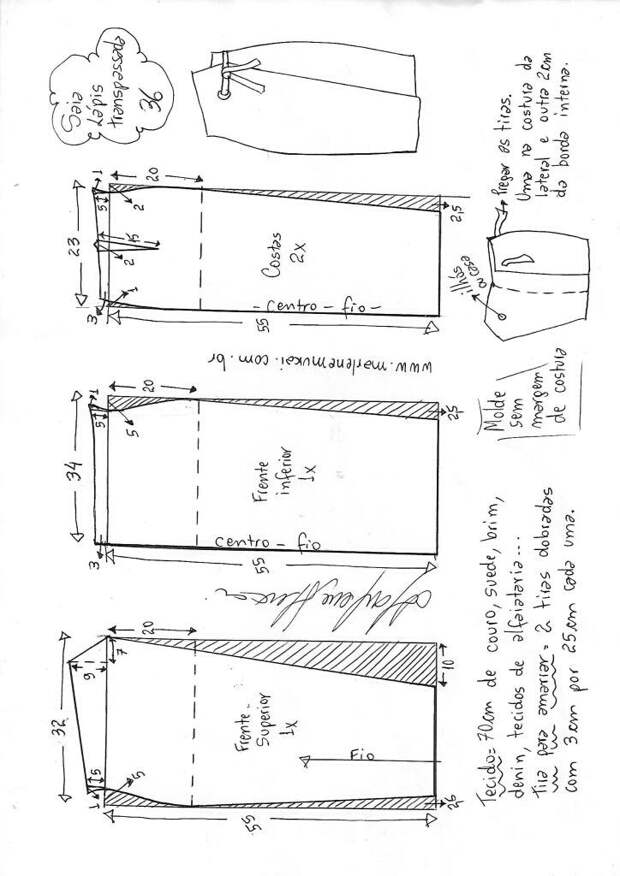 Saia
Lápis
transpassada
36
23
1
5
20
15
2
2
1
3
Costas
2x
- Centro - fio -
55
2,5
ilhós
ou casa
Pregar as tiras.
Uma na costura da
lateral e outra 2cm
da borda interna.
www.marlenemukai.com.br
34
1
5
20
5
3
Frente
inferior
1x
Centro - fio
55
2,5
Molde
sem
margem
de costura
32
9
7
20
5
1
5
Frente-
Superior
1x
Fio
10
55
2,5
Tecido = 70cm de couro, suede, brim,
denin, tecidos de alfaiataria...
Tira para amarrar = 2 tiras dobradas
com 3cm por 25cm cada uma.